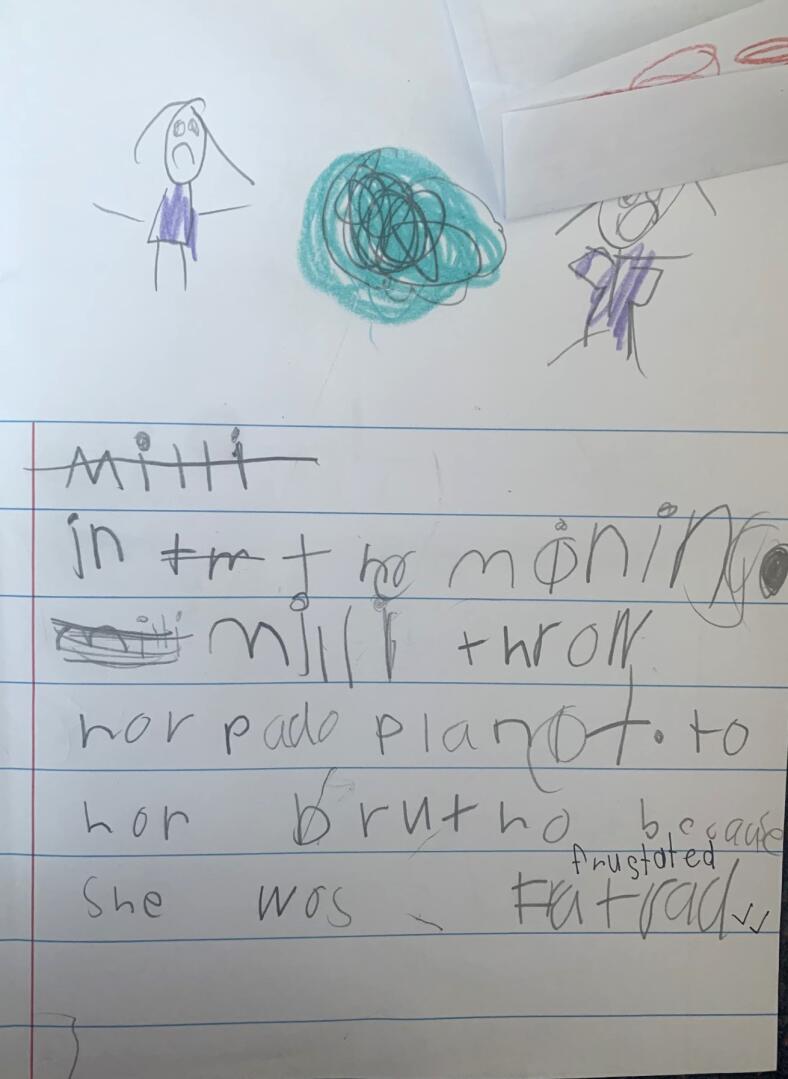 Milli
in tm t ho moning
milli milli throw
hor pado planot. to
hor brutho because
frustated
She wos Fatrad